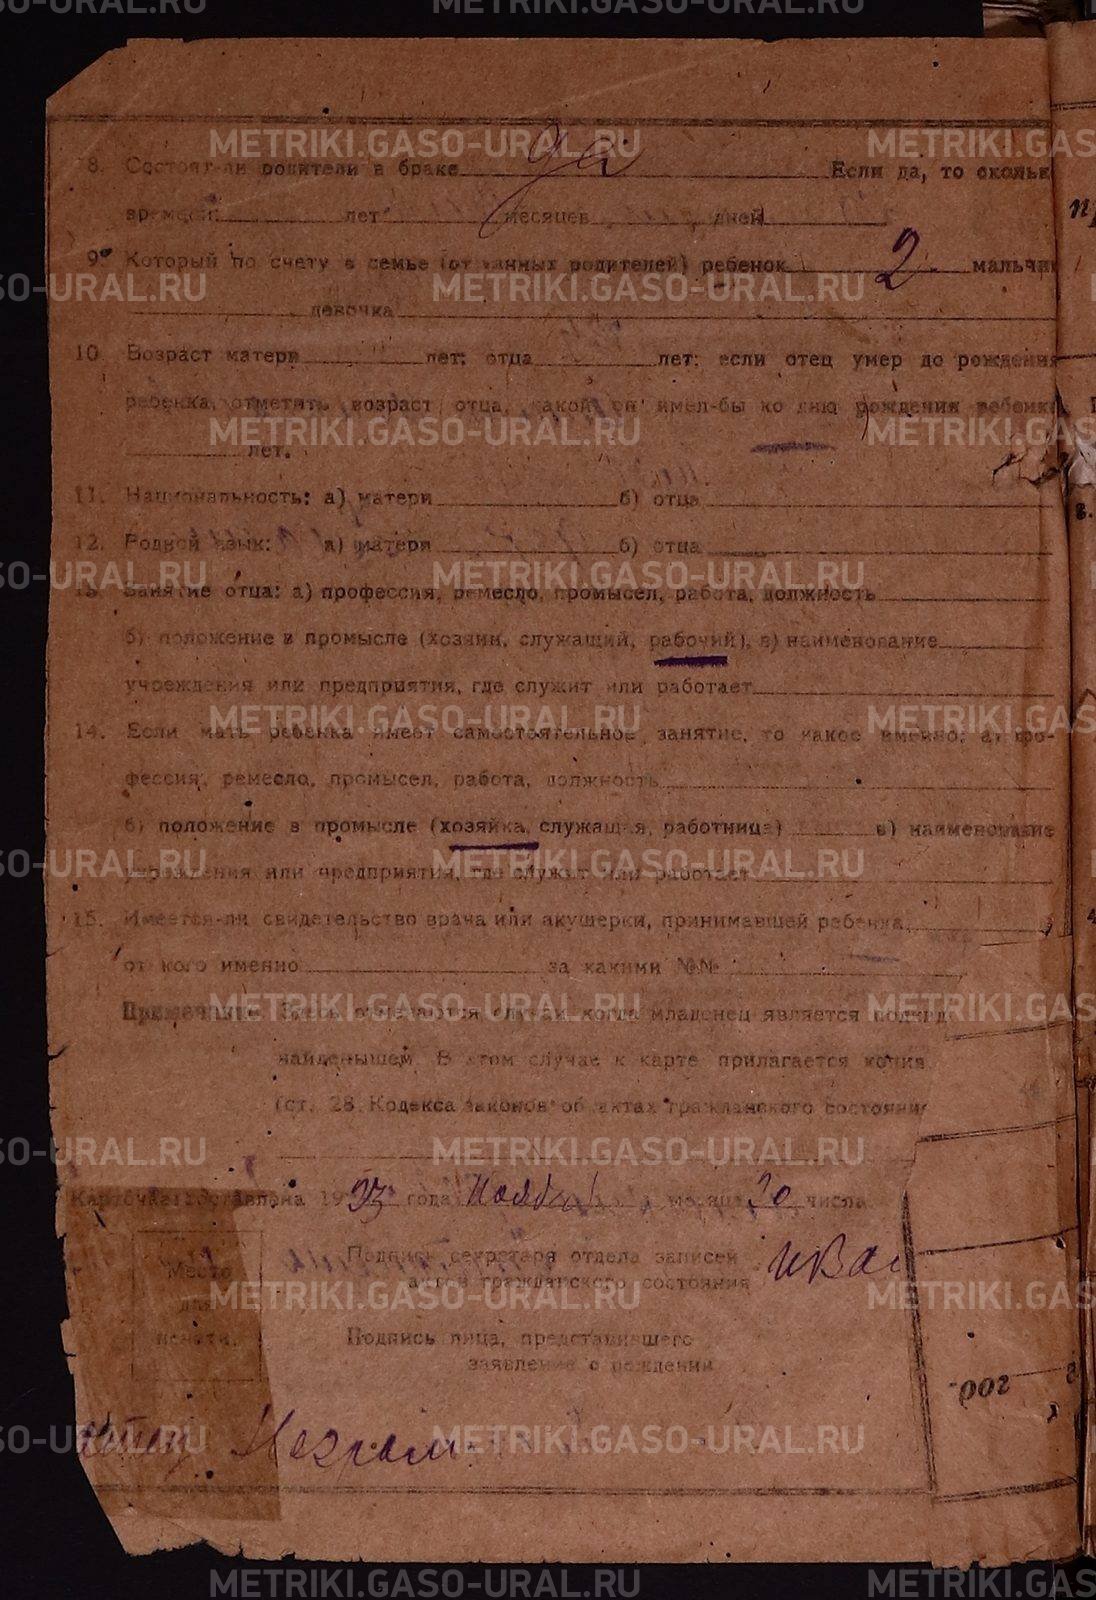 8. Состоят-ли родители в браке да Если да, то сколько
времени: лет месяцев дней
9. Который по счету в семье (от данных родителей) ребенок 2 мальчик
девочка
10. Возраст матери лет: отца лет: если отец умер до рождения
ребенка, отметить возраст отца, какой он имел-бы ко дню рождения ребенка
лет.
11. Национальность: а) матери б) отца
12. Родной язык: а) матери б) отца
13. Занятие отца: а) профессия, ремесло, промысел, работа, должность
б) положение в промысле (хозяин, служащий, рабочий), в) наименование
учреждения или предприятия, где служит или работает
14. Если мать ребенка имеет самостоятельное занятие, то какое именно: а) про-
фессия, ремесло, промысел, работа, должность
б) положение в промысле (хозяйка, служащая, работница) в) наименование
учреждения или предприятия, где служит или работает
15. Имеется-ли свидетельство врача или акушерки, принимавшей ребенка,
от кого именно за какими №№
Примечание. Здесь отмечаются случаи когда младенец является подкид
найденышем. В этом случае к карте прилагается копия
(ст. 28 Кодекса законов об актах гражданского состояния
Карточка составлена 1923 года Ноября месяца 20 числа
Место
для
печати.
Подпись секретаря отдела записей
актов гражданского состояния ИВа
Подпись лица, представившего
заявление о рождении
Неграм.
METRIKI.GASO-URAL.RU